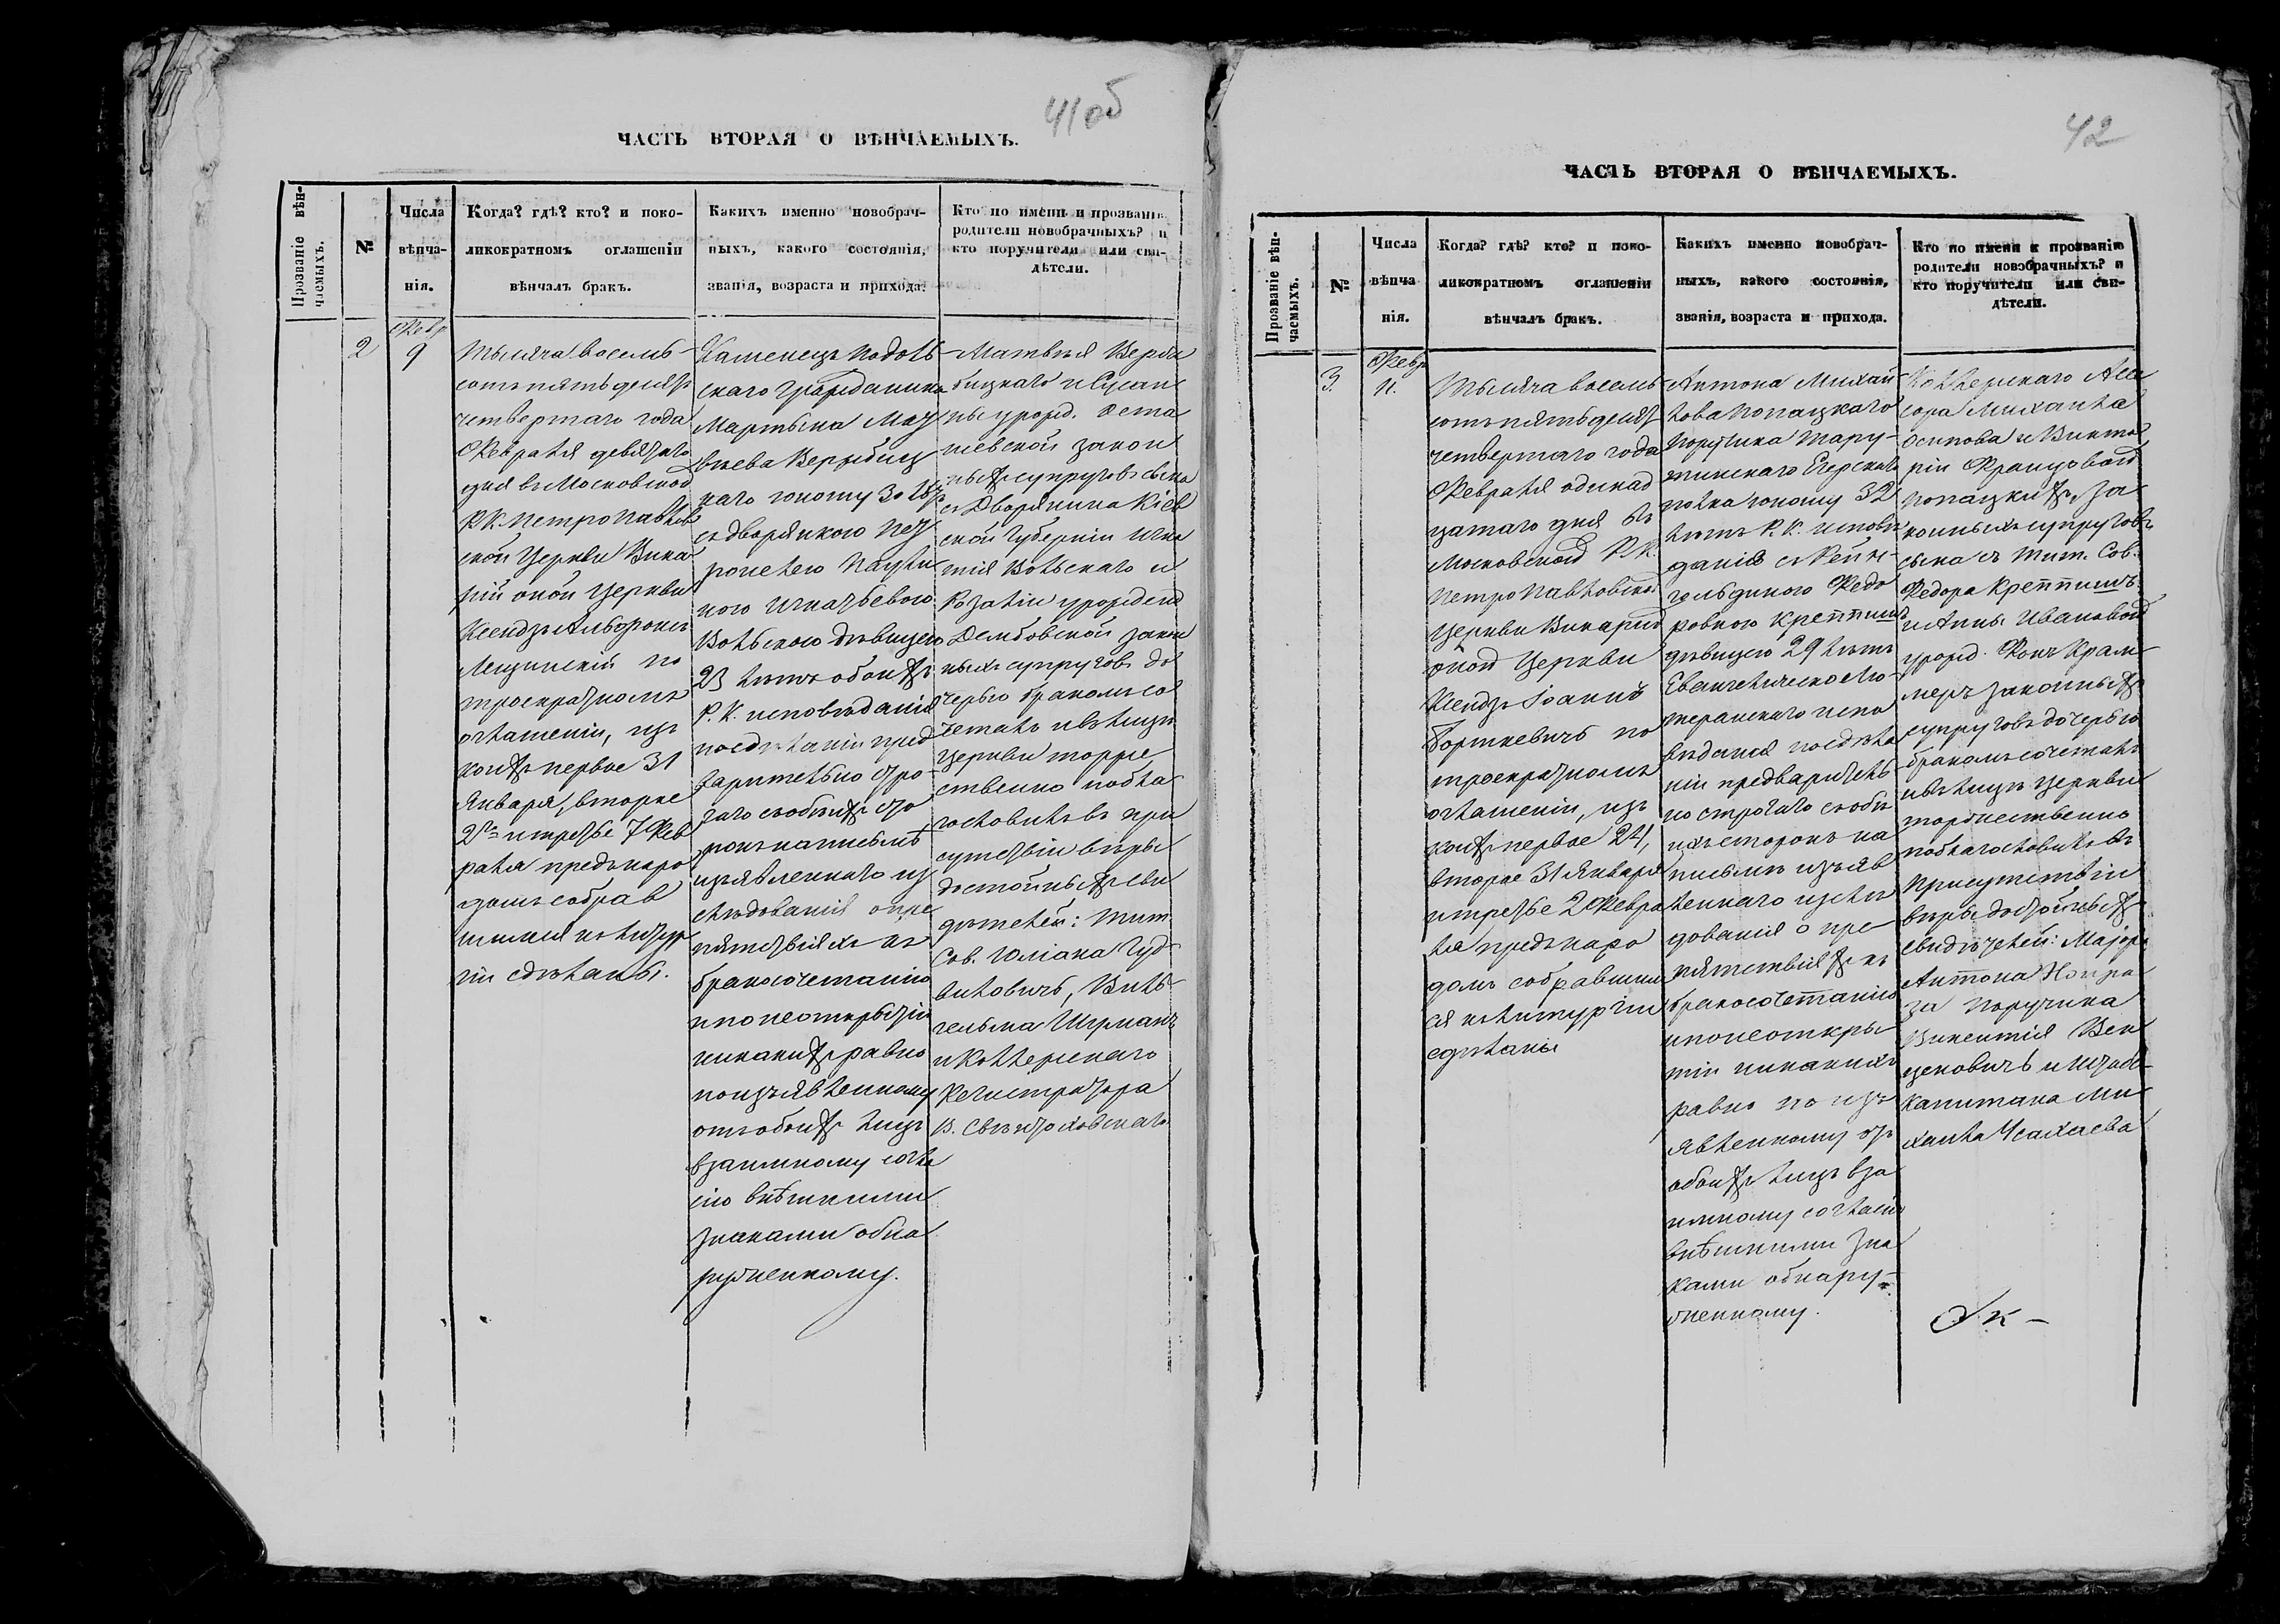 41об
ЧАСТЬ ВТОРАЯ О ВѢНЧАЕМЫХЪ.
Прозваніе вѣн-
чаемыхъ.
№
Числа
вѣнча-
нія.
Когда? гдѣ? кто? и поко-
ликократномъ оглашеніи
вѣнчалъ бракъ.
Какихъ именно новобрач-
ныхъ, какого состоянія,
званія, возраста и прихода.
Кто по имени и прозванію
родители новобрачныхъ? и
кто поручители или сви-
дѣтели.
2
Февр
9
Тысяча восемь-
сотъ пятьдесятъ
четвертаго года
Февраля девятаго
дня въ Московской
Р.К. Петропавлов
ской Церкви Вика
рій оной Церкви
Ксендзъ Альфонсъ
по
троекратномъ
оглашеніи, изъ
коихъ первое 31
Января, второе
2го и третье 7 Фев
раля предъ наро
домъ собрав
шимся къ литур
гіи сдѣланы.
Каменецъ Подоль
скаго Гражданина
Мартына Мат
вѣева Вержбиц
каго юношу 30 лѣтъ
съ дворянкою Пет
ронелею
ною Игнатьевою
Вольскою дѣвицею
23 лѣтъ обоихъ
Р. К. исповѣданія
по сдѣланіи пред
варительно стро
гаго съ обѣихъ сто
ронъ на письмѣ
изъявленнаго из
слѣдованія о пре
пятствіяхъ къ
бракосочетанію
и по неоткрытіи
никакихъ равно
по изъявленному
отъ обоихъ лицъ
взаимному согла
сію внѣшними
знаками обна
руженному.
Матвѣя Верж
бицкаго и Сусан
ны урожд.
закон
ныхъ супруговъ сына
съ Дворянина Кіев
ской Губерніи Игна
тія Вольскаго и
Розаліи урожденной
Дембовской закон
ныхъ супруговъ до
черью бракомъ со
четалъ и въ лицѣ
Церкви торже
ственно побла
гословилъ въ при
сутствіи вѣры
достойныхъ сви
дѣтелей: Тит.
Сов. Юліана Гуд
виловичъ, Виль
гельма Шурманъ
и Коллежскаго
Регистратора
В.
42
ЧАСТЬ ВТОРАЯ О ВѢНЧАЕМЫХЪ.
Прозваніе вѣн-
чаемыхъ.
№
Числа
вѣнча
нія.
Когда? гдѣ? кто? и поко-
ликократномъ оглашеніи
вѣнчалъ бракъ.
Какихъ именно новобрач-
ныхъ, какого состоянія,
званія, возраста и прихода.
Кто по имени и прозванію
родители новобрачныхъ? и
кто поручители или сви-
дѣтели.
3.
Февр
11.
Тысяча восемь
сотъ пятьдесятъ
четвертаго года
Февраля одинад
цатаго дня въ
Московской Р.К.
Петропавловской
Церкви Викарій
оной Церкви
Ксендзъ Іоаннъ
Борткевичъ по
троекратномъ
оглашеніи, изъ
коихъ первое 24,
второе 31 Января
и третье 2 Февра
ля предъ наро
домъ собравшим
ся къ литургіи
сдѣланы
Антона Михай
лова Попацкаго
Поручика Тару-
тинскаго Егерскаго
полка юношу 32
лѣтъ Р. К. исповѣ
данія съ Рейн-
гольдиною Федо
ровною Креппишъ
дѣвицею 29 лѣтъ
Евангелическо Лю-
теранскаго испо
вѣданія по сдѣла
ніи предваритель
но строгаго съ обѣ
ихъ сторонъ на
письмѣ изъяв
леннаго изслѣ
дованія о пре
пятствіяхъ къ
бракосочетанію
и по неоткры
тіи никакихъ
равно по изъ
явленному отъ
обоихъ лицъ вза
имному согласію
внѣшними зна
ками обнару-
женному.
Коллежскаго Ассе
сора Михаила
Осипова и Викто
ріи Францовой
Попацкихъ, за
конныхъ супруговъ
сына съ Тит. Сов.
Федора Креппишъ
и Анны Ивановой
урожд. Фонъ Крам
меръ законныхъ
супруговъ дочерью
бракомъ сочеталъ
и въ лицѣ Церкви
торжественно
поблагословилъ въ
присутствіи
вѣры достойныхъ
свидѣтелей: Маіора
Антона
за Поручика
Викентія Вен
цковичъ и Штабс-
Капитана Ми
хаила Исахаева